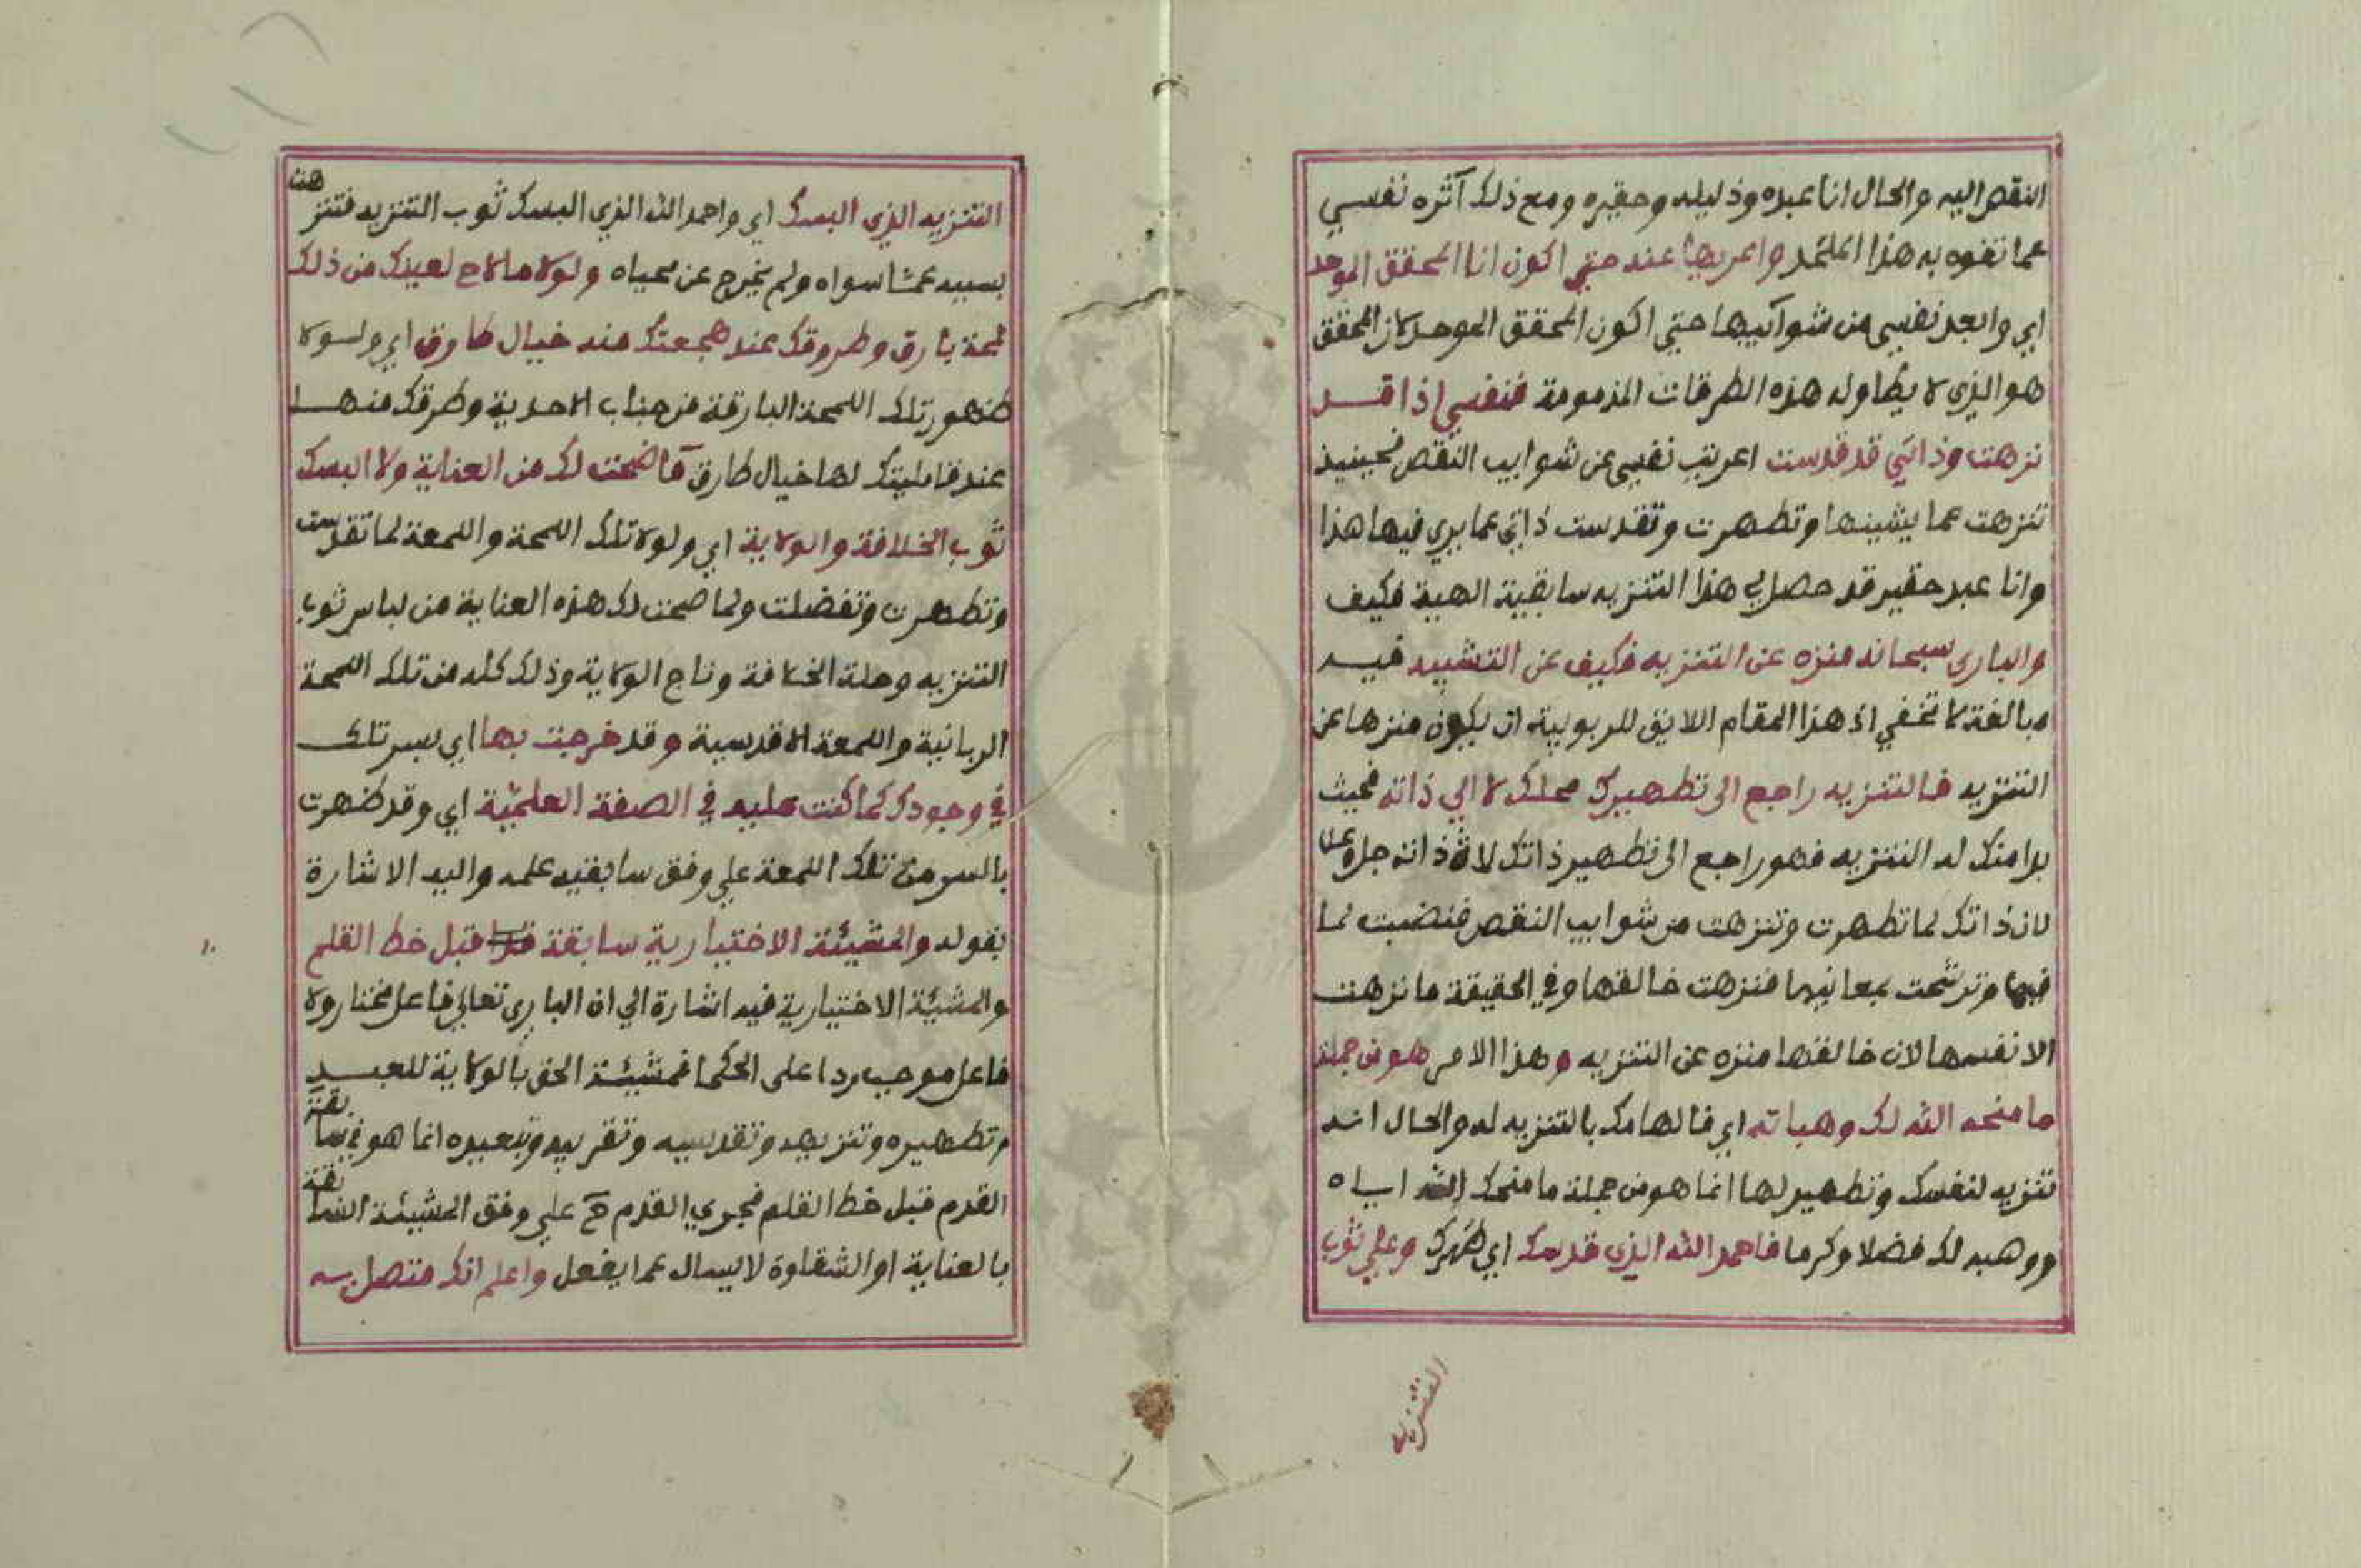 النقص اليه والحال انا عبده وذليله وحقيره ومع ذلك آنزه نفسي
عما تفوه به هذا الملحد واعريها عند حتي اكون انا المحقق الموحد
اي وابعد نفسي من شوآئيبها حتي اكون المحقق الموحد لان المحقق
هو الذي لا يطاوله هذه الطرقات المذمومة فنفسي اذا قد
نزهت وذاتي قد قدست اعريت نفسي عن شوايب النقص فحينيذ
تنزهت عما يشينها وتطهرت وتقدست ذاتي عما يري فيها هذا
وانا عبد حقير قد حصل لي هذا التنزيه سابقية الهية فكيف
والباري سبحانه منزه عن التنزيه فكيف عن التشبيه فيه
مبالغة لا تخفي اذ هذا المقام اللايق للربوبية ان يكون منزها عن
التنزيه فالتنزيه راجع الى تطهيرك محلك لا الي ذاته فحيث
بدا منك له التنزيه فهو راجع الى تطهير ذاتك لا لذاته جل وعلا
لان ذاتك لما تطهرت وتنزهت من شوايب النقص فنضبت لما
فيها وترشحت بمعانيها فنزهت خالقها وفي الحقيقة ما نزهت
الا نفسها لان خالقها منزه عن التنزيه وهذا الامر هو من جملة
ما منحه الله لك وهباته اي فالهامك بالتنزيه له والحال انه
تنزيه لنفسك وتطهير لها انما هو من جملة ما منحك الله اياه
ووهبه لك فضلا وكرما فاحمد الله الذي قدسك اي طهرك وعلي ثوب
التنزيه
التنزيه الذي البسك اي واحمد الله الذي البسك ثوب التنزيه فتنزهت
بسببه عمّا سواه ولم يخرج عن محياه ولولا ما لاح لعينك من ذلك
لمحة بارق وطروقك عند هجعتك منه خيال طارق اي ولولا
ظهور تلك اللمحة البارقة من جناب الاحدية وطرقك منها
عند قابليتك لها خيال طارق ما صحت لك من العناية ولا البسك
ثوب الخلافة والولاية اي ولولا تلك اللمحة واللمعة لما تقدست
وتطهرت وتفضلت ولما صحت لك هذه العناية من لباس ثوب
التنزيه وحلة الخلافة وتاج الولاية وذلك كله من تلك اللمحة
الربانية واللمعة الاقدسية وقد خرجت بها اي بسر تلك
في وجودك كما كنت عليه في الصفة العلميّة اي وقد ظهرت
بالسر من تلك اللمعة علي وفق سابقيه علمه واليه الاشارة
بقوله والمشيئة الاختيارية سابقة قبل خط القلم
والمشيئة الاختيارية فيه اشارة الي ان الباري تعالي فاعل مختار ولا
فاعل موجب ردا على الحكما فمشيئة الحق بالولاية للعبد
وتطهيره وتنزيهه وتقدسيه وتقريبه وتبعيده انما هو في سابقة
القدم قبل خط القلم فجري القدم ح علي وفق المشيئة السابقة
بالعناية او الشقاوة لا يسال عما يفعل واعلم انك متصل به